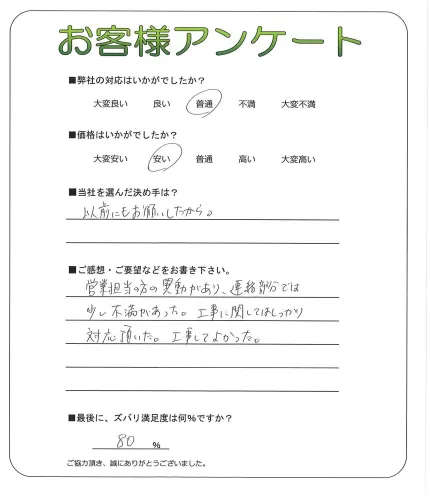 お客様アンケート
■弊社の対応はいかがでしたか？
大変良い　良い　普通　不満　大変不満
■価格はいかがでしたか？
大変安い　安い　普通　高い　大変高い
■当社を選んだ決め手は？
以前にもお願いしたから。
■ご感想・ご要望などをお書き下さい。
営業担当の方の異動があり、連絡部分では
少し不満があった。工事に関してはしっかり
対応頂いた。工事してよかった。
■最後に、ズバリ満足度は何%ですか？
80 %
ご協力頂き、誠にありがとうございました。